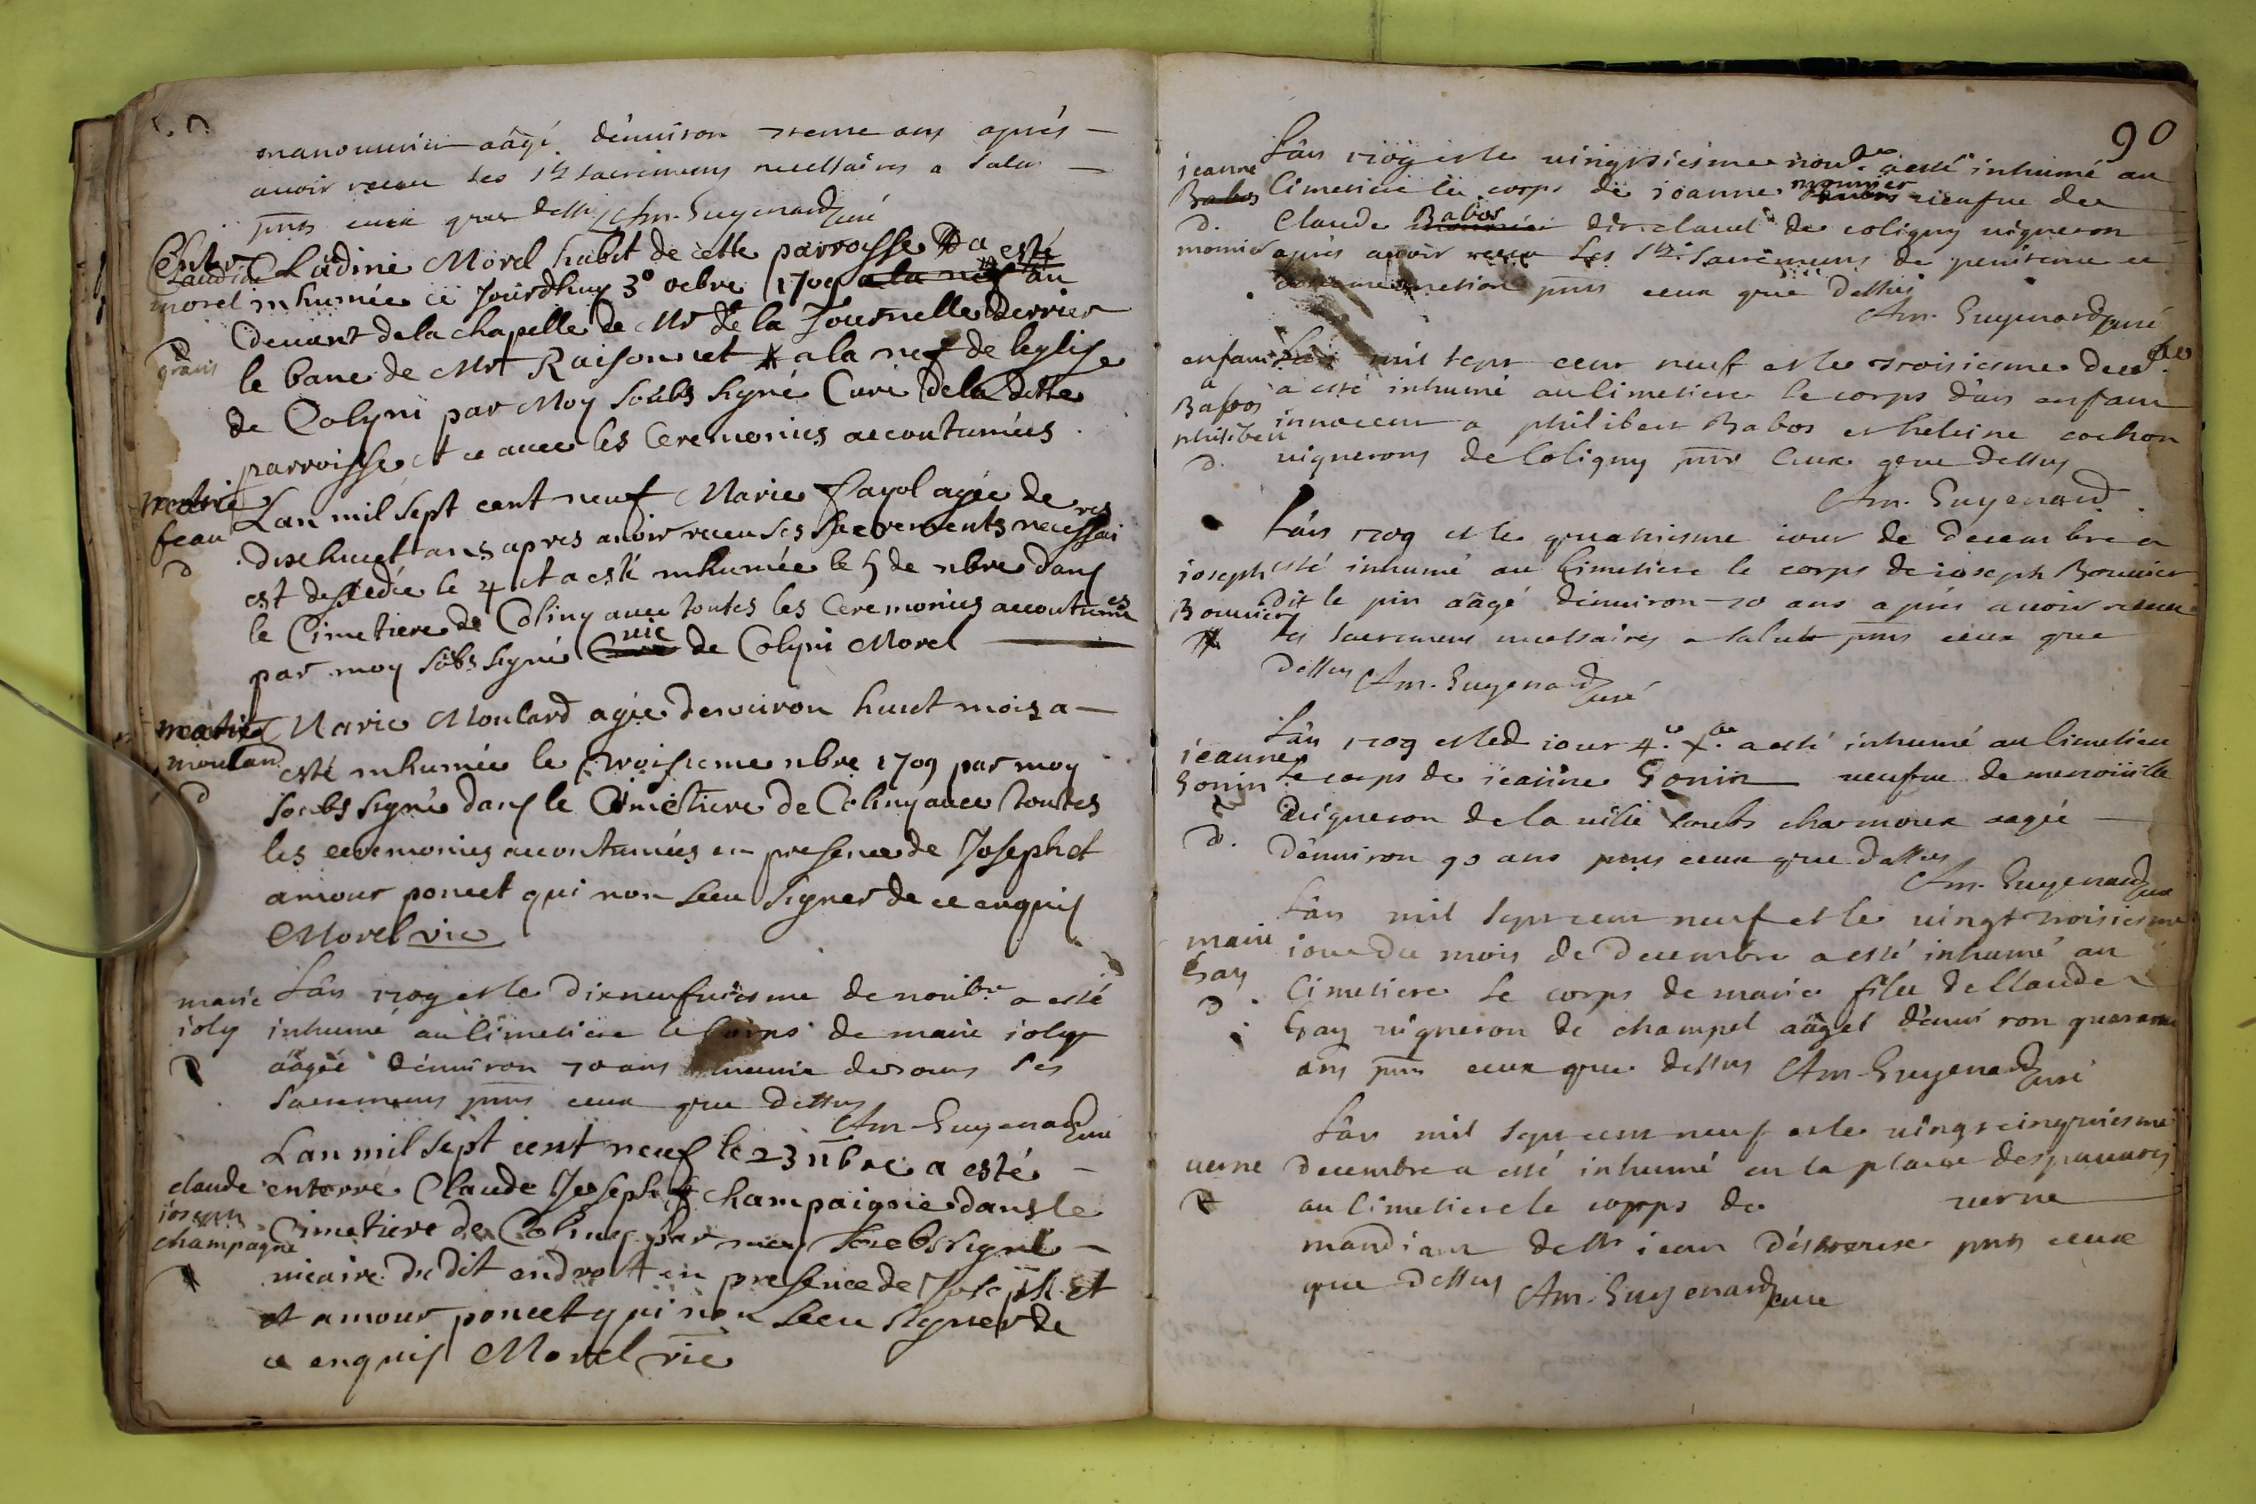 manouurier aâgé dénuiron trente ans aprés
auoir receu les sts sacremens necessaires a salut
pnts ceux que dessus Am. Guyenard curé
Claudine Morel habit de cette parroisse a esté
inhumée ce Jourdhuy 3o octbre 1709 a la nef au
Deuant de la chapelle de Mr de la Tournelle derrier
le banc de Mr Raisonnet a la nef de leglise
de Colyni par Moy soubs signé Curé de la ditte
parroisse et ce auec les Ceremonies accoutumées
Claudine
morel
D
grátis
Lan mil sept cent neuf Marie fayol agée de
dixhuict ans apres auoir receu ses sacrements necessai
res
est decedée le 4 et a esté inhumée le 5 de nbre dans
le Cimetiere de Coliny auec toutes les Ceremonies accoutumé
es
par moy soubs signé vic de Colyni Morel
marie
D
Marie Moulard agée denuiron huict mois a
esté inhumée le troisieme nbre 1709 par moy
soubs signé dans le Cimetiere de Coliny auec toutes
les ceremonies accoutumées en presence de Joseph et
amour poncet qui non sceu signer de ce enquis
Morel vic
marie
moulan
D
Lân 1709 et le dixneufuiesme de noubre a esté
inhumé au Cimetiere le Corps de marie ioly
aâgée dénuiron 70 ans munie de tous les
sacremens pnts ceux que dessus
Am. Guyenard curé
marie
ioly
Lan mil sept cent neuf le 23 nbre a esté
enterré Claude Joseph champaigne dans le
Cimetiere de Coliny par moy soubs signé
vicaire du dit endroit en presence de Joseph et
et amour poncet qui non sceu signer de
ce enquis Morel vic
claude
ioseph
champagne
90
Lân 1709 et le uingtsiesme noubre a esté inhumé au
Cimetiere le corps de ioanne monnier ueufue de
Claude Babos dit claud de coligny uigneron
aprés auoir receu les sts sacremens de penitence et
pnts ceux que dessus
Am. Guyenard curé
jeanne
Babos
D.
monnier
Lân mil sept cent neuf et le troisiesme decbre
a esté inhumé au Cimetiere le corps dún enfant
innocent a philibert Babos et heleine cochon
uignerons de Coligny pnts Ceux que dessus
Am. Guyenard
enfant
a
Babos
philibert
D.
Lân 1709 et le quatriesme iour de decembre a
esté inhumé au Cimetiere le corps de ioseph Bouuier
dit le pin aâgé dénuiron 70 ans aprés auoir receu
les sacremens necessaires a salut pnts ceux que
dessus Am. Guyenard curé
ioseph
Bouuier
Lân 1709 et led iour 4e xbre a esté inhumé au Cimetiere
le corps de ieanne Gonin ueufue de
uigneron de la uille soubs charmoux aagée
dénuiron 90 ans pnts ceux que dessus
Am. Guyenard curé
jeanne
Gonin
D.
Lân mil sept cent neuf et le uingt troisiesme
iour du mois de decembre a esté inhumé au
Cimetiere le corps de marie fille de Claude
Gay uigneron de champel aâgée dénuiron quarante
ans pnts ceux que dessus Am. Guyenard curé
marie
Gay
D
Lân mil sept cent neuf et le uingt cinquiesme
decembre a esté inhumé en la place des pauures
au Cimetiere le corps de uerne
mandiant de st iean détreux pnts ceux
que dessus Am. Guyenard curé
uerne